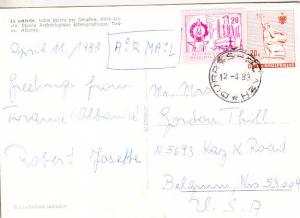 La nativité, icône peinte par Onuphre, XVIe siè-
cle. Musée Archéologique Ethnographique, Tira-
na, Albanie.
April 11, 1983
AIR MAIL
20
20
DURRES
12-4-83
Greetings from
Tirane (Albania)
Robert Josette
Mr. Mrs
Gordon
N 5693 Kay K Road
Belgium, Wis 53004
U.S.A